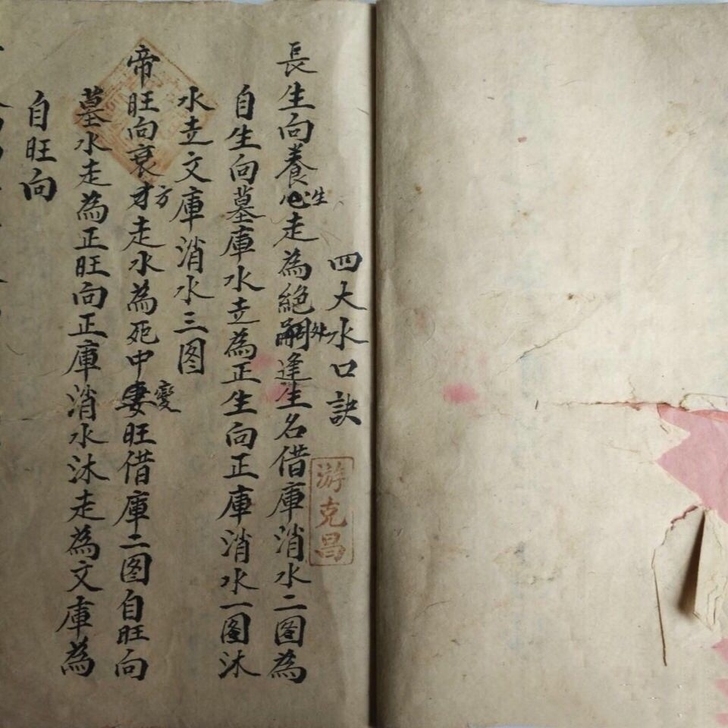 四大水口訣
游克昌
長生向養生走為絕處逢生名借庫消水二图為
自生向墓庫水走為正生向正庫消水一图沐
水走文庫消水三图
帝旺向衰方走水為死中變旺借庫二图自旺向
墓水走為正旺向正庫消水沐走為文庫為
自旺向